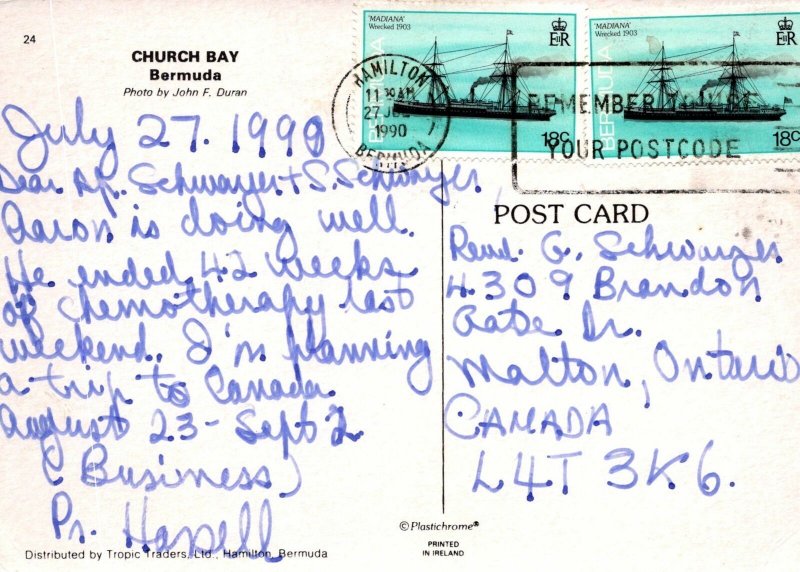 24
CHURCH BAY
Bermuda
Photo by John F. Duran
'MADIANA'
Wrecked 1903
E II R
BERMUDA
18c
'MADIANA'
Wrecked 1903
E II R
BERMUDA
18c
HAMILTON
11 AM
27 JUL
1990
BERMUDA
REMEMBER TO USE
YOUR POSTCODE
July 27. 1990
Dear Schwarzer + S. Schwarzer,
Aaron is doing well.
He ended 42 weeks
of chemotherapy last
weekend. I'm planning
a trip to Canada
August 23 - Sept 2
(Business)
Pr.
POST CARD
G. Schwarzer
4309 Brandon
Gate Dr.
Malton, Ontario
CANADA
L4T 3K6.
© Plastichrome®
PRINTED
IN IRELAND
Distributed by Tropic Traders, Ltd., Hamilton, Bermuda